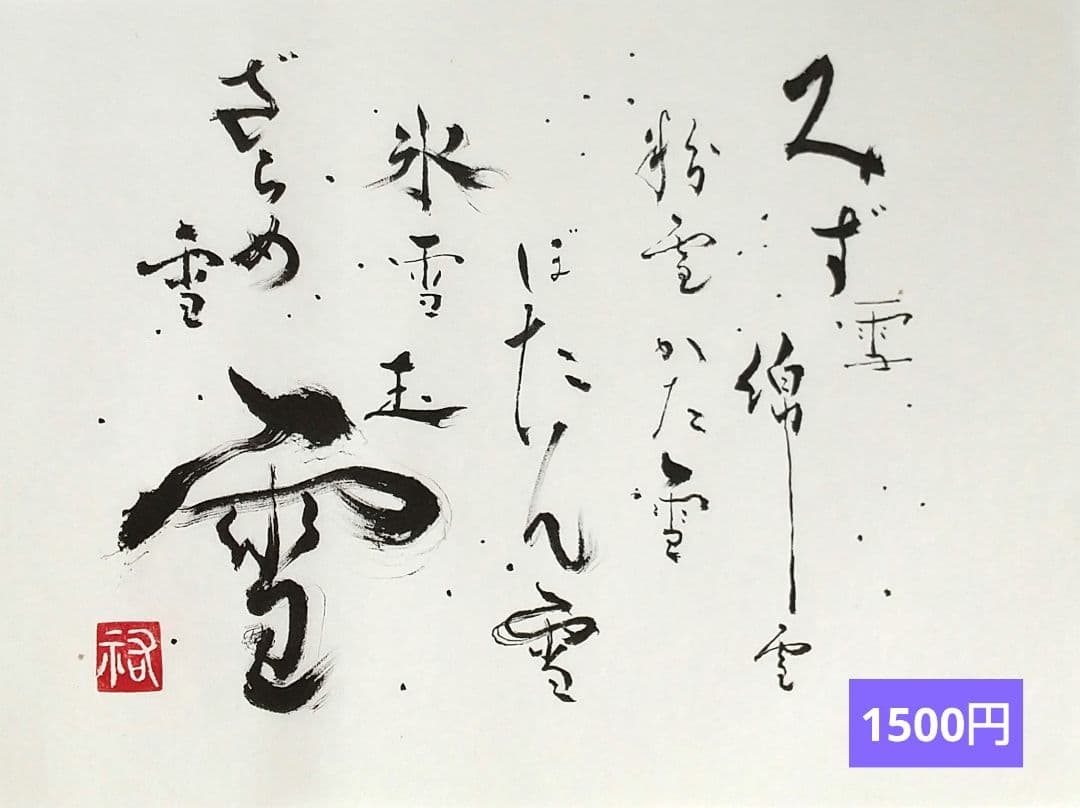 みず雪
綿雪
粉雪
かた雪
ぼたん雪
氷雪
玉
ざらめ
雪
雪
1500円